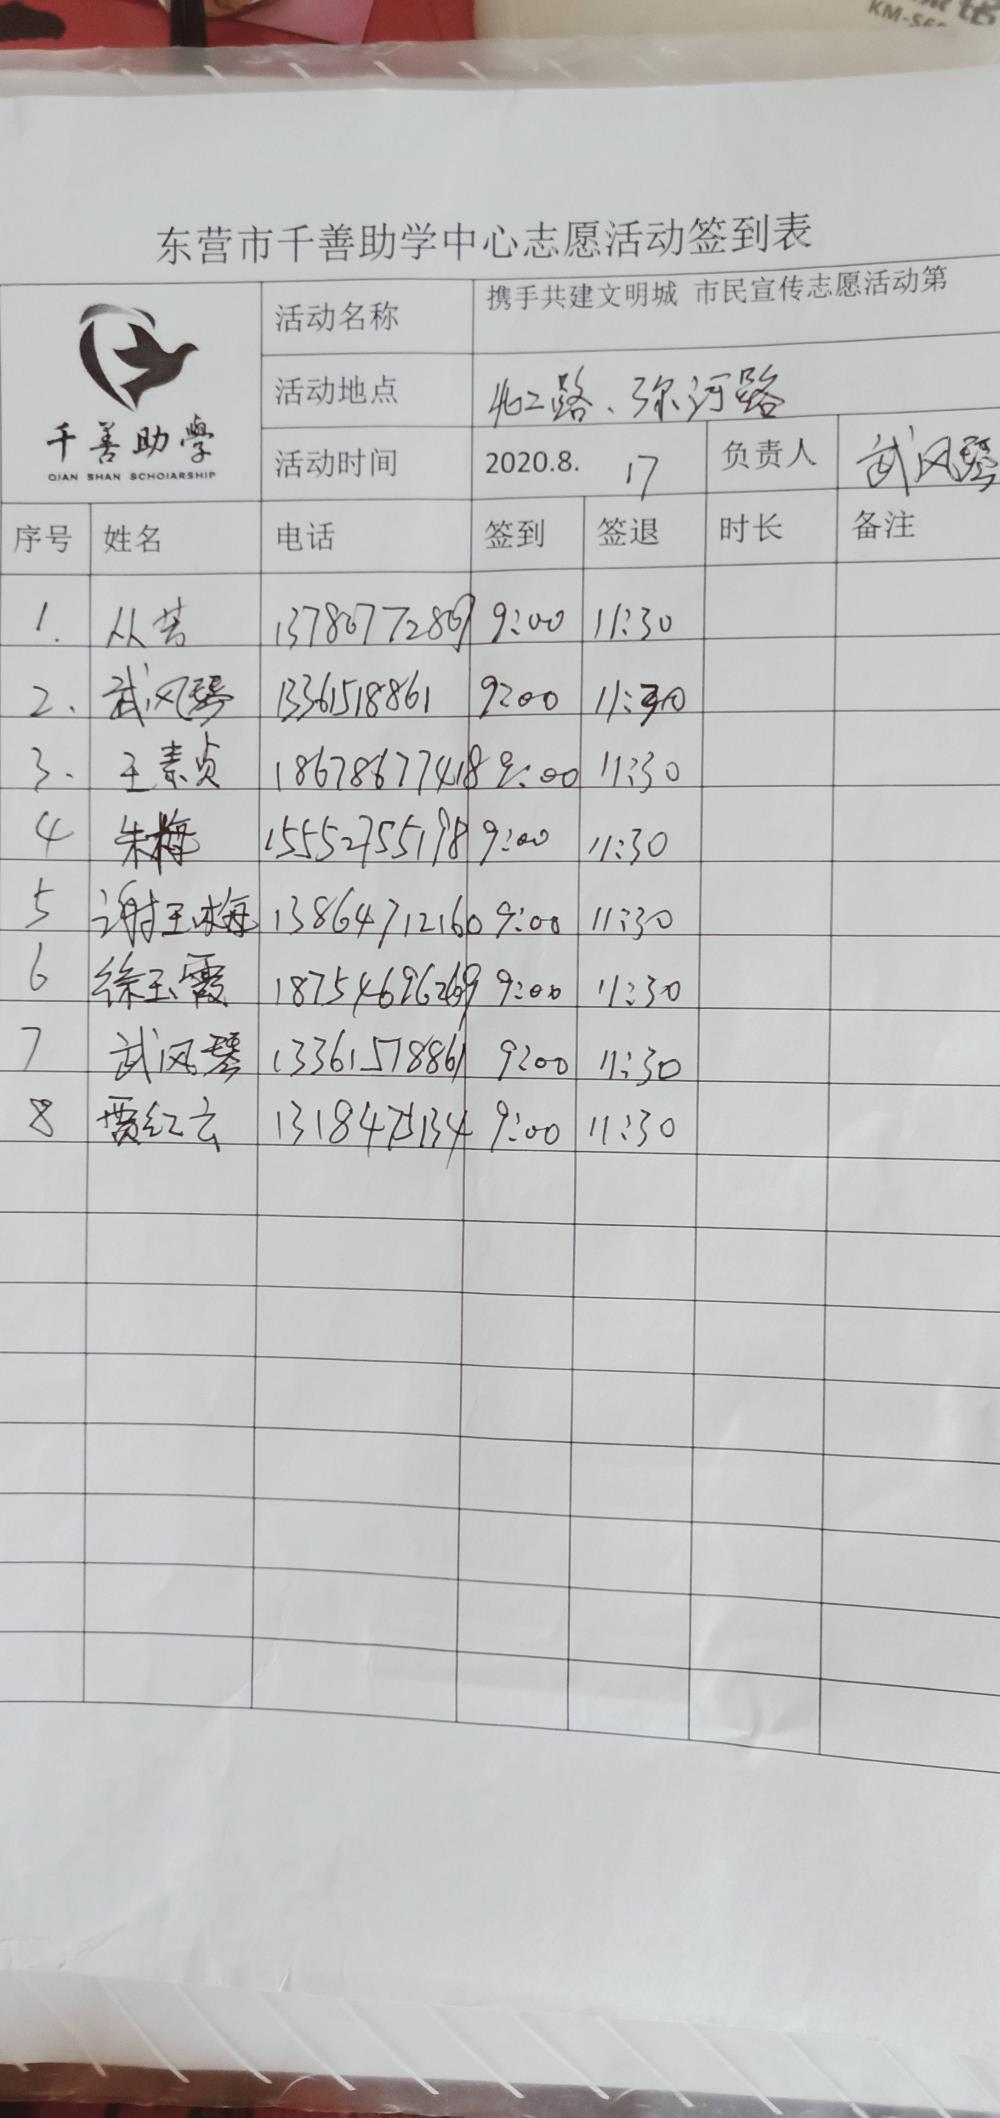 KM-S6
东营市千善助学中心志愿活动签到表
千善助学
QIAN SHAN SCHOIARSHIP
活动名称 携手共建文明城 市民宣传志愿活动第
活动地点 路、弥河路
活动时间 2020.8. 17 负责人 武风琴
序号 姓名 电话 签到 签退 时长 备注
1. 9:00 11:30
2. 武风琴 13361518861 9:00 11:30
3. 王素贞 18678677418 9:00 11:30
4 朱梅 15552755198 9:00 11:30
5 谢玉梅 13864712160 9:00 11:30
6 徐玉霞 9:00 11:30
7 武风琴 13361518861 9:00 11:30
8 贾红云 9:00 11:30